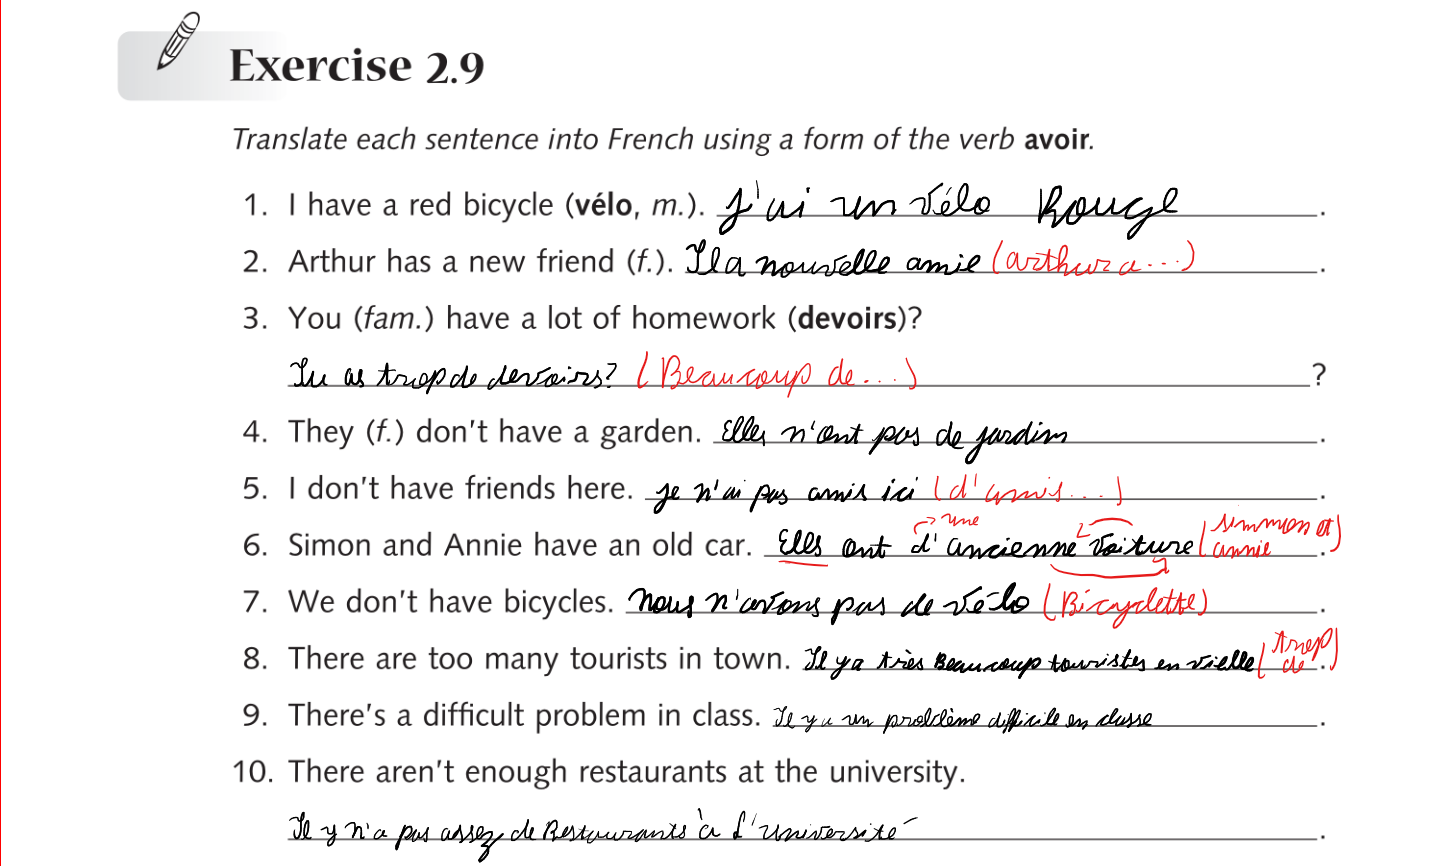 Exercise 2.9
Translate each sentence into French using a form of the verb avoir.
1. I have a red bicycle (vélo, m.). J'ai un vélo Rouge.
2. Arthur has a new friend (f.). Il a nouvelle amie (arthur a...).
3. You (fam.) have a lot of homework (devoirs)?
Tu as trop de devoirs? (Beaucoup de...) ?
4. They (f.) don't have a garden. Elles n'ont pas de jardin.
5. I don't have friends here. je n'ai pas amis ici (d'amis...).
6. Simon and Annie have an old car. Elles ont d' une ancienne 2 voiture (simmon et annie).
7. We don't have bicycles. Nous n'avons pas de vélo (Bicyclette).
8. There are too many tourists in town. Il y a très Beaucoup touristes en vielle (trop de).
9. There's a difficult problem in class. Il y a un problème difficile en classe.
10. There aren't enough restaurants at the university.
Il y n'a pas assez de Restaurants à l'université.